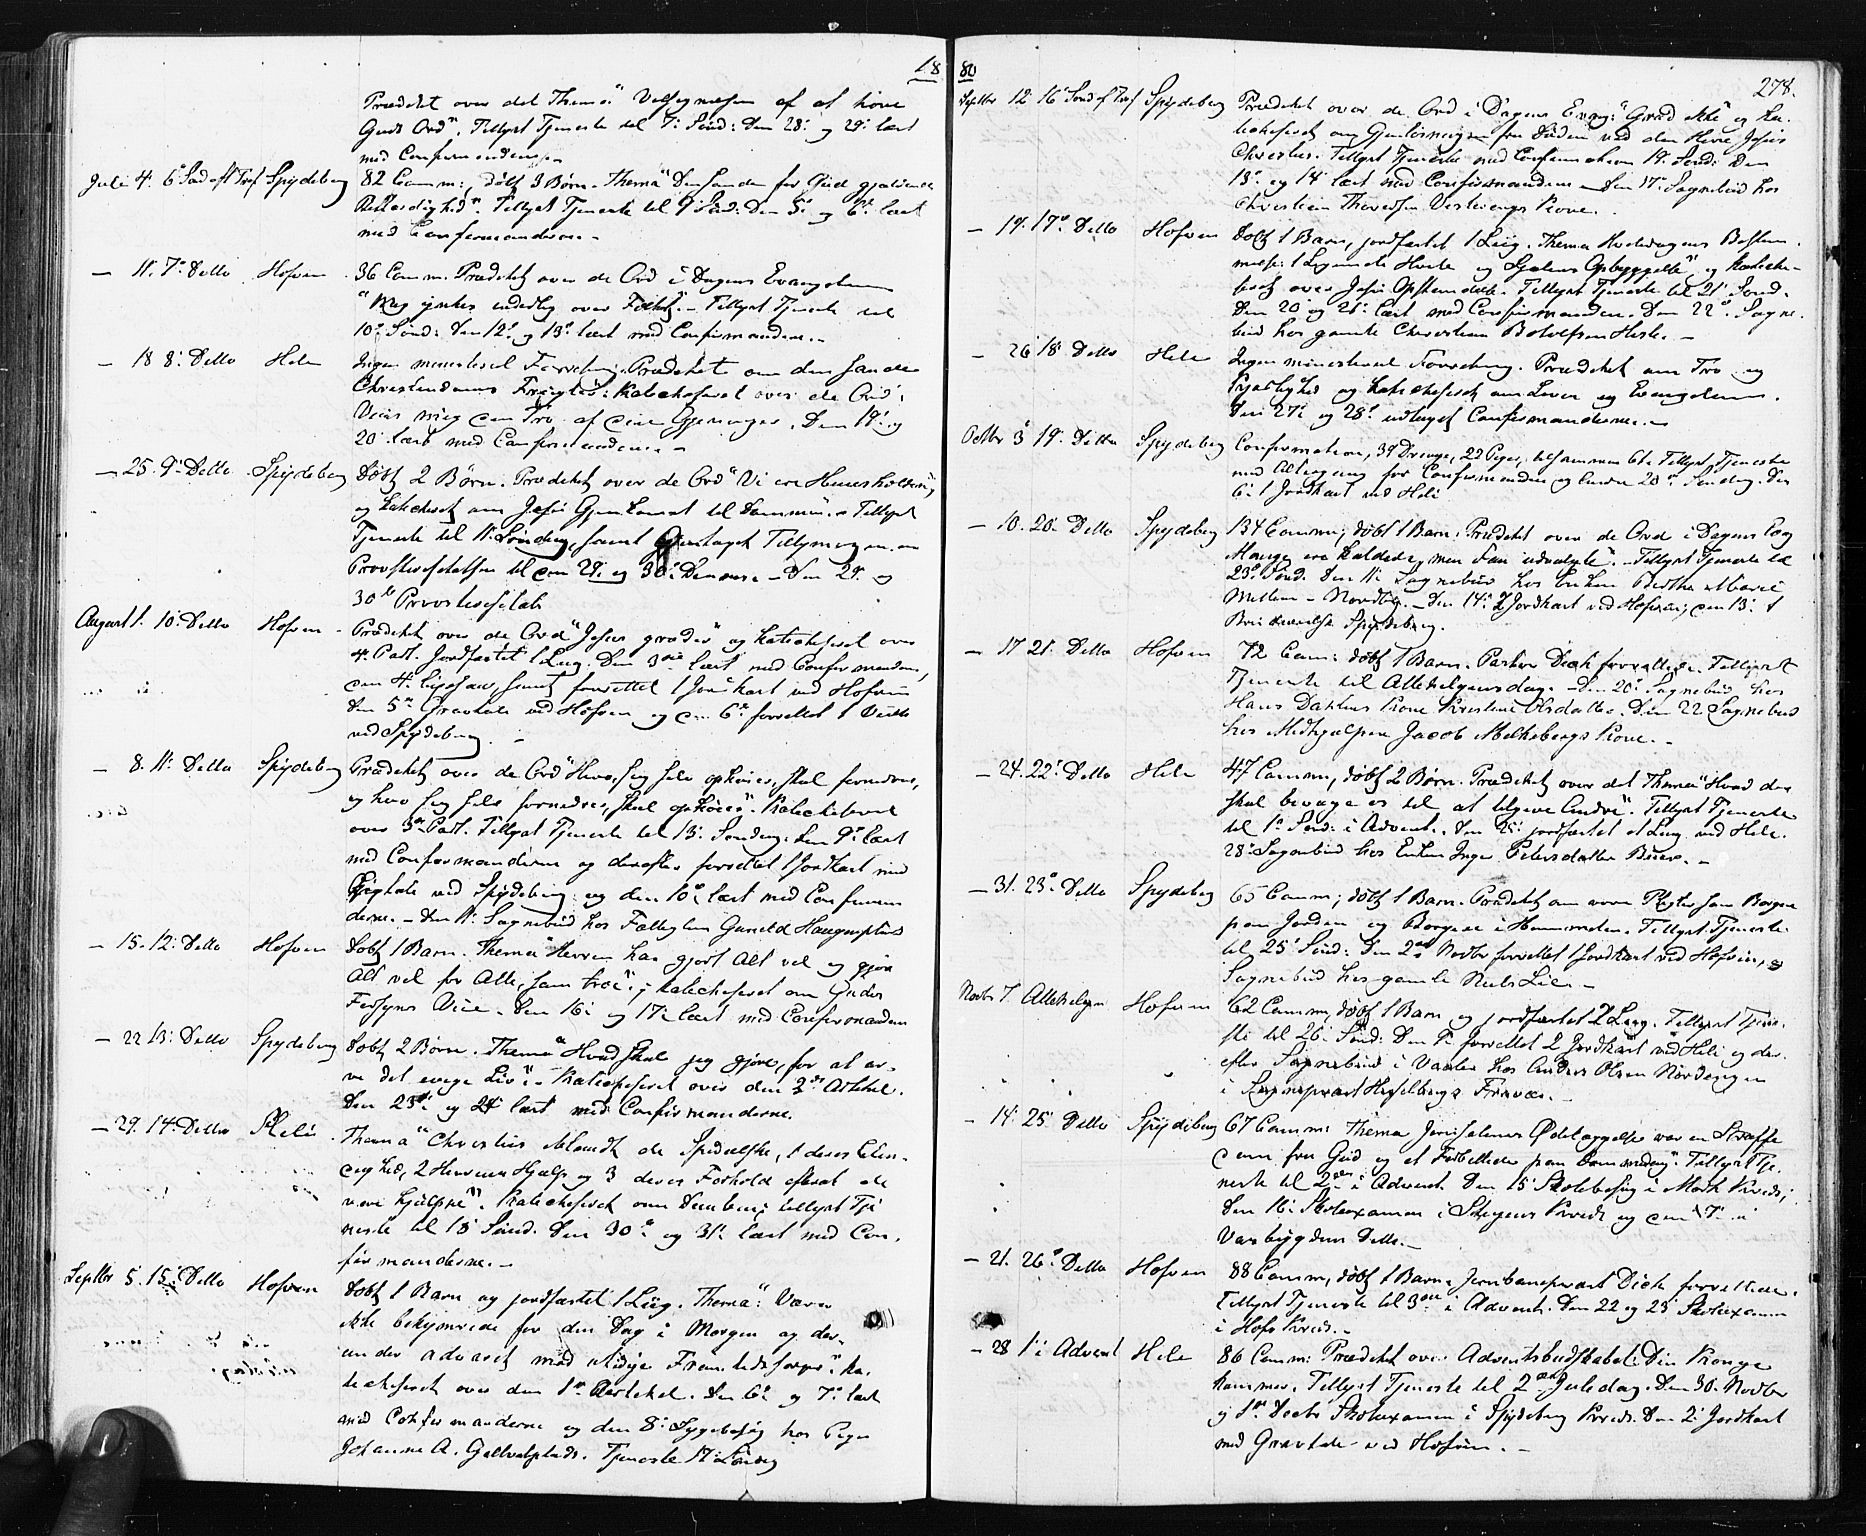 18
Prædiket over det Thema: Velsignelsen af at høre
Guds Ord". Tillyst Tjeneste til 7: Sønd: Den 28: og 29: læst
med Confirmanderne.
Juli 4. 6 Sød aft Tref Spydeberg 82 Comm:, døbt 3 Børn. Thema "Den Sande for Gud gjældende
Retfærdighed". Tillyst Tjeneste til 9 Sønd: Den 5: og 6: læst
med Confirmanderne.
— 11. 7: Detto Hofvin 36 Comm. Prædiket over de Ord i Dagens Evangelium
"Mig ynkes inderlig over Folket". Tillyst Tjeneste til
10: Sønd: Den 12: og 13: læst med Confirmanderne.
— 18 8: Detto Heli Ingen ministeriel Forretning. Prædiket om den sande
Christendoms Frugter. Katechiseret over de Ord:
Viis mig din Tro af dine Gjerninger. Den 19: og
20 læst med Confirmanderne.
— 25. 9: Detto Spydeberg Døbt 2 Børn. Prædiket over de Ord "Vi ere Huusholdere"
og katechiset om Jesu Gjenkomst til Dommen. Tillyst
Tjeneste til 11: Søndag, samt gjentaget Tillysningen om
Provstevisitatsen til den 29: og 30: Dennes. Den 29. og
30te Provstevisitats
August 1. 10: Detto Hofvin Prædiket over de Ord "Jesus græder" og katechiseret over
4. Part. Jordfæstet 1 Liig. Den 3die læst med Confirmanderne,
den 4: ligesaa, samt forrettet 1 Jordkast ved Hofvin
Den 5te Gravtale ved Hofvin og den 6te forrettet 1 Vielse
ved Spydeberg.
— 8. 11: Detto Spydeberg Prædiket over de Ord "Hvo sig selv ophøier, skal fornedres,
og hvo sig selv fornedrer, skal ophøies". Katechiseret
over 3die Part. Tillyst Tjeneste til 13: Søndag. Den 9: læst
med Confirmanderne og derefter forrettet 1 Jordkast med
Liigtale ved Spydeberg og den 10: læst med Confirman
derne. — Den 11: Sognebud hos Fattiglem Gunild
— 15. 12: Detto Hofvin Døbt 1 Barn. Thema "Herren har gjort Alt vel og gjør
Alt vel for Alle, som troe"; katechiseret om Guds
Forsyns Veie. Den 16: og 17: læst med Confirmanderne
— 22 13: Detto Spydeberg Døbt 2 Børn. Thema "Hvad skal jeg gjøre, for at ar-
ve det evige Liv". Katechiseret over den 2den Artikel.
Den 23de og 24 læst med Confirmanderne.
— 29. 14: Detto Heli Thema "Christus iblandt de Spedalske, 1 deres Elen-
dighed, 2 Herrens Hjælp og 3 deres Forhold efterat de
vare hjulpne". Katechiseret om Daaben; tillyst Tje
neste til 18 Sønd. Den 30: og 31: læst med Con-
firmanderne.
Septbr 5. 15: Detto Hofvin Døbt 1 Barn og jordfæstet 1 Liig. Thema: Værer
ikke bekymrede for den Dag i Morgen og der-
under advaret mod Fremtidssorger. Ka-
techiseret over den 1ste Artikel. Den 6: og 7: læst
med Confirmanderne og den 8: Sygebesøg hos Pige
Johanne A. Tjeneste 17: Søndag
80
278.
Septbr 12 16 Sønd aft Tref Spydeberg Prædiket over de Ord i Dagens Evang: "Græd ikke" og ka-
techiseret om Gjenløsningen fra Døden ved den Herre Jesus
Christus. Tillyst Tjeneste med Confirmation 19. Sønd: Den
13: og 14 læst med Confirmanderne. Den 17: Sognebud hos
Christian Thoresen Kone.
— 19. 17: Detto Hofvin Døbt 1 Barn, jordfæstet 1 Liig. Thema Hviledagens Bestem-
melse: 1 Legemets Hvile og Sjælens Opbyggelse", og kateche-
seret over Jesu Opstandelse. Tillyst Tjeneste til 21: Sønd.
Den 20 og 21: læst med Confirmanderne. Den 22: Sogne-
bud hos gamle Christian
— 26 18: Detto Heli Ingen ministeriel Forretning. Prædiket om Tro og
Kjærlighed og katechiseret om Loven og Evangelium.
Den 27: og 28: udtaget Confirmanderne.
Octbr 3 19. Detto Spydeberg Confirmation, 39 Drenge, 22 Piger, tilsammen 61. Tillyst Tjeneste
med Altergang for Confirmanderne og Andre 20de Søndag. Den
6: 1 Jordkast ved Heli
— 10. 20: Detto Spydeberg 134 Comm; døbt 1 Barn. Prædiket over de Ord i Dagens
Mange ere kaldede, men Faa udvalgte". Tillyst Tjeneste til
23: Sønd. Den 11: Sognebud hos Enken Berthe Marie
Den 14: 2 Jordkast ved Hofvin; den 13: 1
Spydeberg.
— 17 21: Detto Hofvin 72 Com: døbt 1 Barn. Pastor Dick forrettede. Tillyst
Tjeneste til Allehelgensdag. — Den 20: Sognebud hos
Hans Dahlens Kone Kirstine Olsdatter. Den 22 Sognebud
hos Medhjælper Jacob Kone.
— 24. 22: Detto Heli 47 Comm, døbt 2 Børn. Prædiket over det Thema "Hvad der
skal bevæge os til at tilgive Andre". Tillyst Tjeneste
til 1ste Sønd: i Advent. Den 25: jordfæstet et Liig ved Heli.
28: Sognebud hos Enken Inger Petersdatter
— 31. 23: Detto Spydeberg 65 Comm; døbt 1 Barn. Prædiket om vore Pligter som Borgere
paa Jorden og Borgere i Himmelen. Tillyst Tjeneste
til 25: Sønd: Den 2den Novbr forrettet 1 Jordkast ved Hofvin, og
Sognebud hos gamle Niels
Novbr 7. Allehelgen Hofvin 62 Comm, døbt 1 Barn og jordfæstet 2 Liig. Tillyst Tjene-
ste til 26: Sønd: Den forrettet 2 Jordkast ved Heli og der-
efter Sognebud i Vaaler hos Anders Olsen
i Sognepræst Fravær.
— 14: 25 Detto Spydeberg 67 Comm: Thema Jerusalems Ødelæggelse var en Straffe
dom fra Gud og et Forbillede paa Dommedag. Tillyst Tje-
neste til 2den i Advent. Den 15 Skolebesøg i Kreds;
Den 16: Skoleexamen i Kreds og den 17: i
Detto.
— 21. 26: Detto Hofvin 88 Comm, døbt 1 Barn. Jernbanepræst Dick forrettede.
Tillyst Tjeneste til 3die i Advent. Den 22 og 23 Skoleexamen
i Hofs Kreds.
— 28 1: i Advent Heli 86 Comm: Prædiket over Adventsbudskabet: Din Konge
kommer. Tillyst Tjeneste til 2den Juledag. Den 30. Novbr
og 1ste Decbr Skoleexamen i Spydeberg Kreds. Den 2: Jordkast
med Gravtale ved Hofvin.